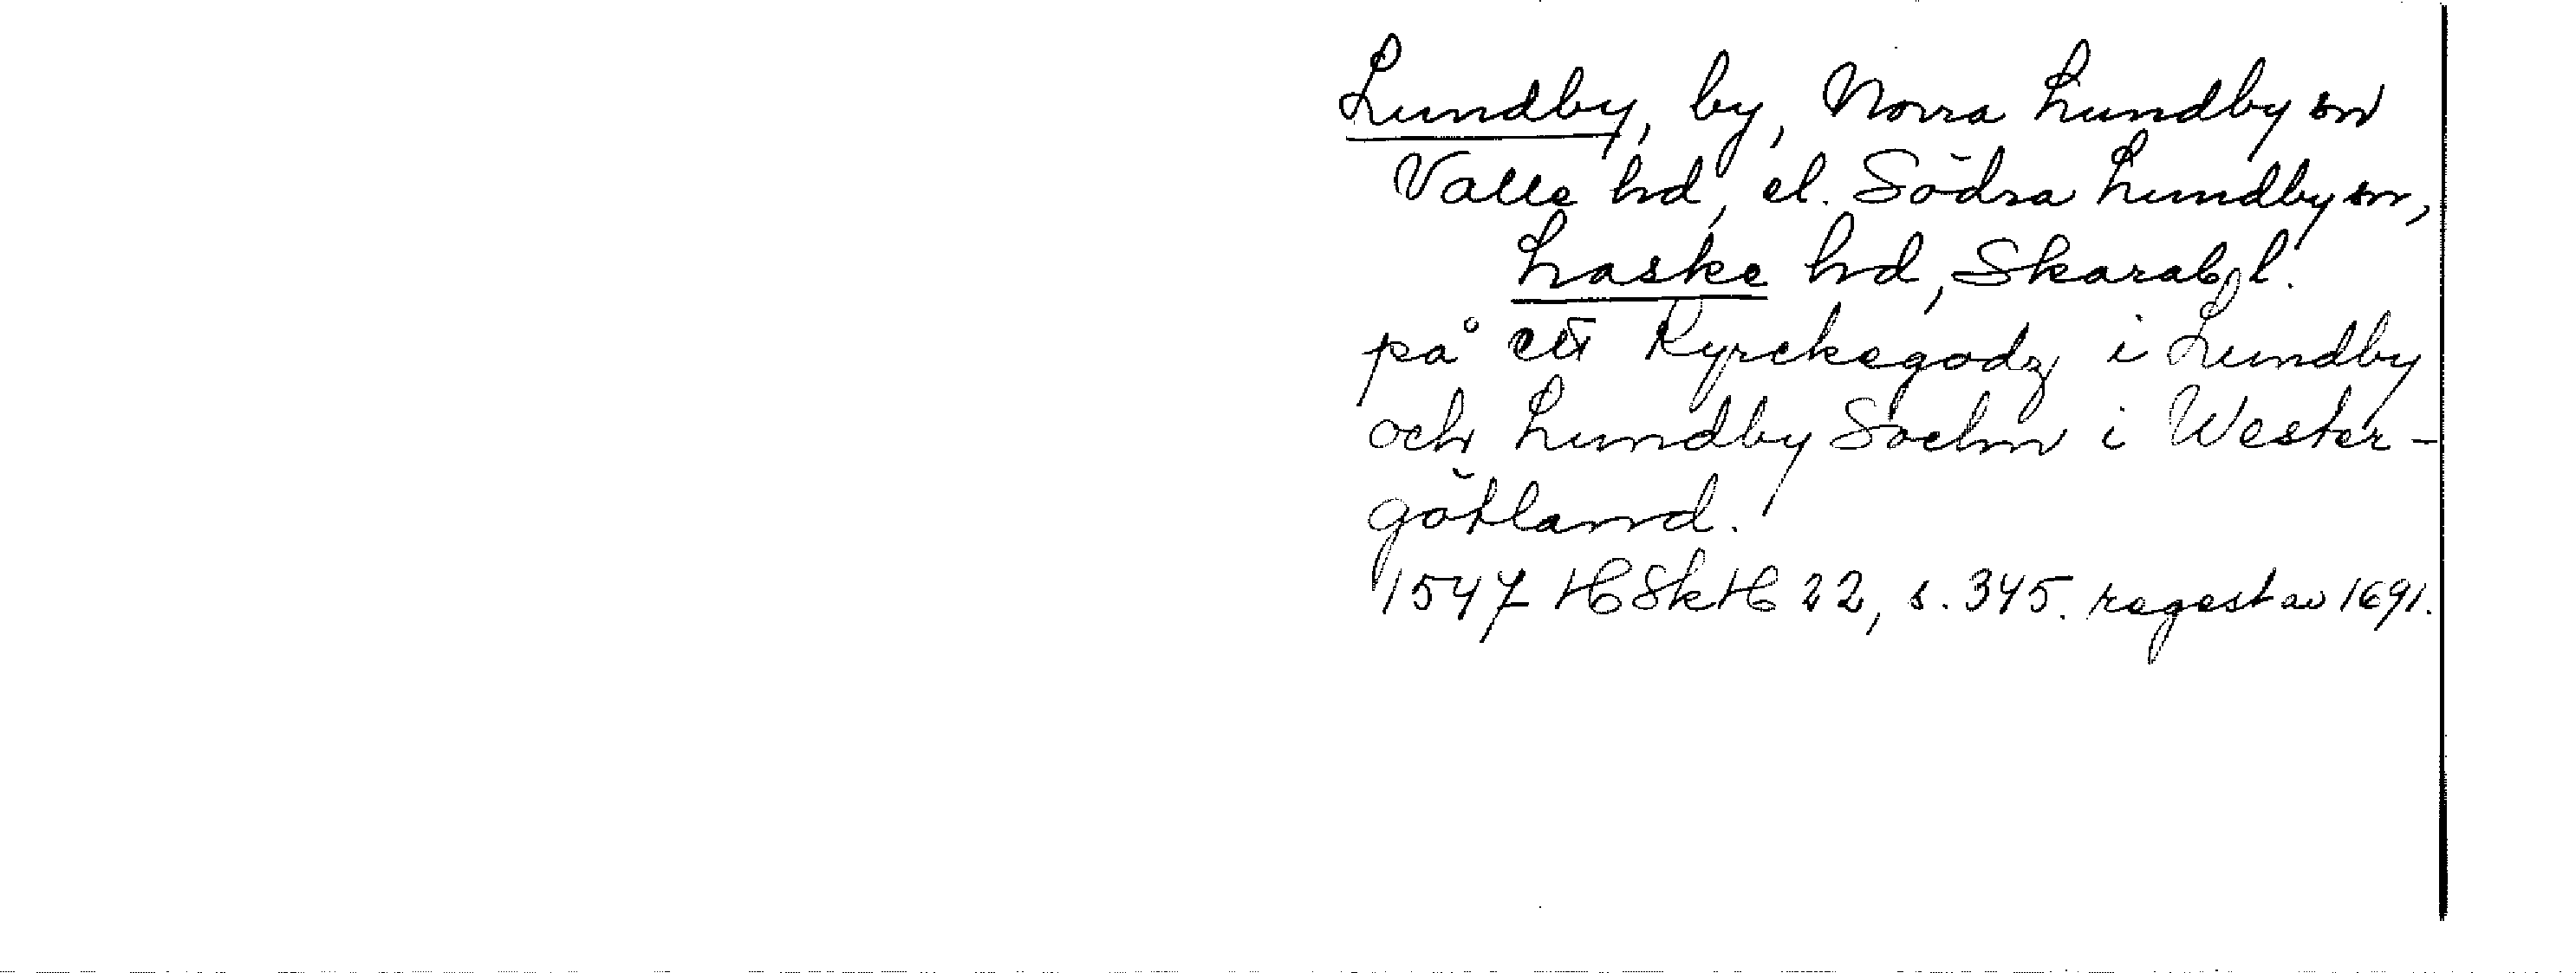 Lundby, by, Norra Lundby sn
Valle hd, el. Södra Lundby sn,
Laske hd, Skarabg l.
på ett Kyrckegodz i Lundby
och Lundby Sochn i Wester-
götland.
1547 HSkH 22, s. 345. regest av 1691.